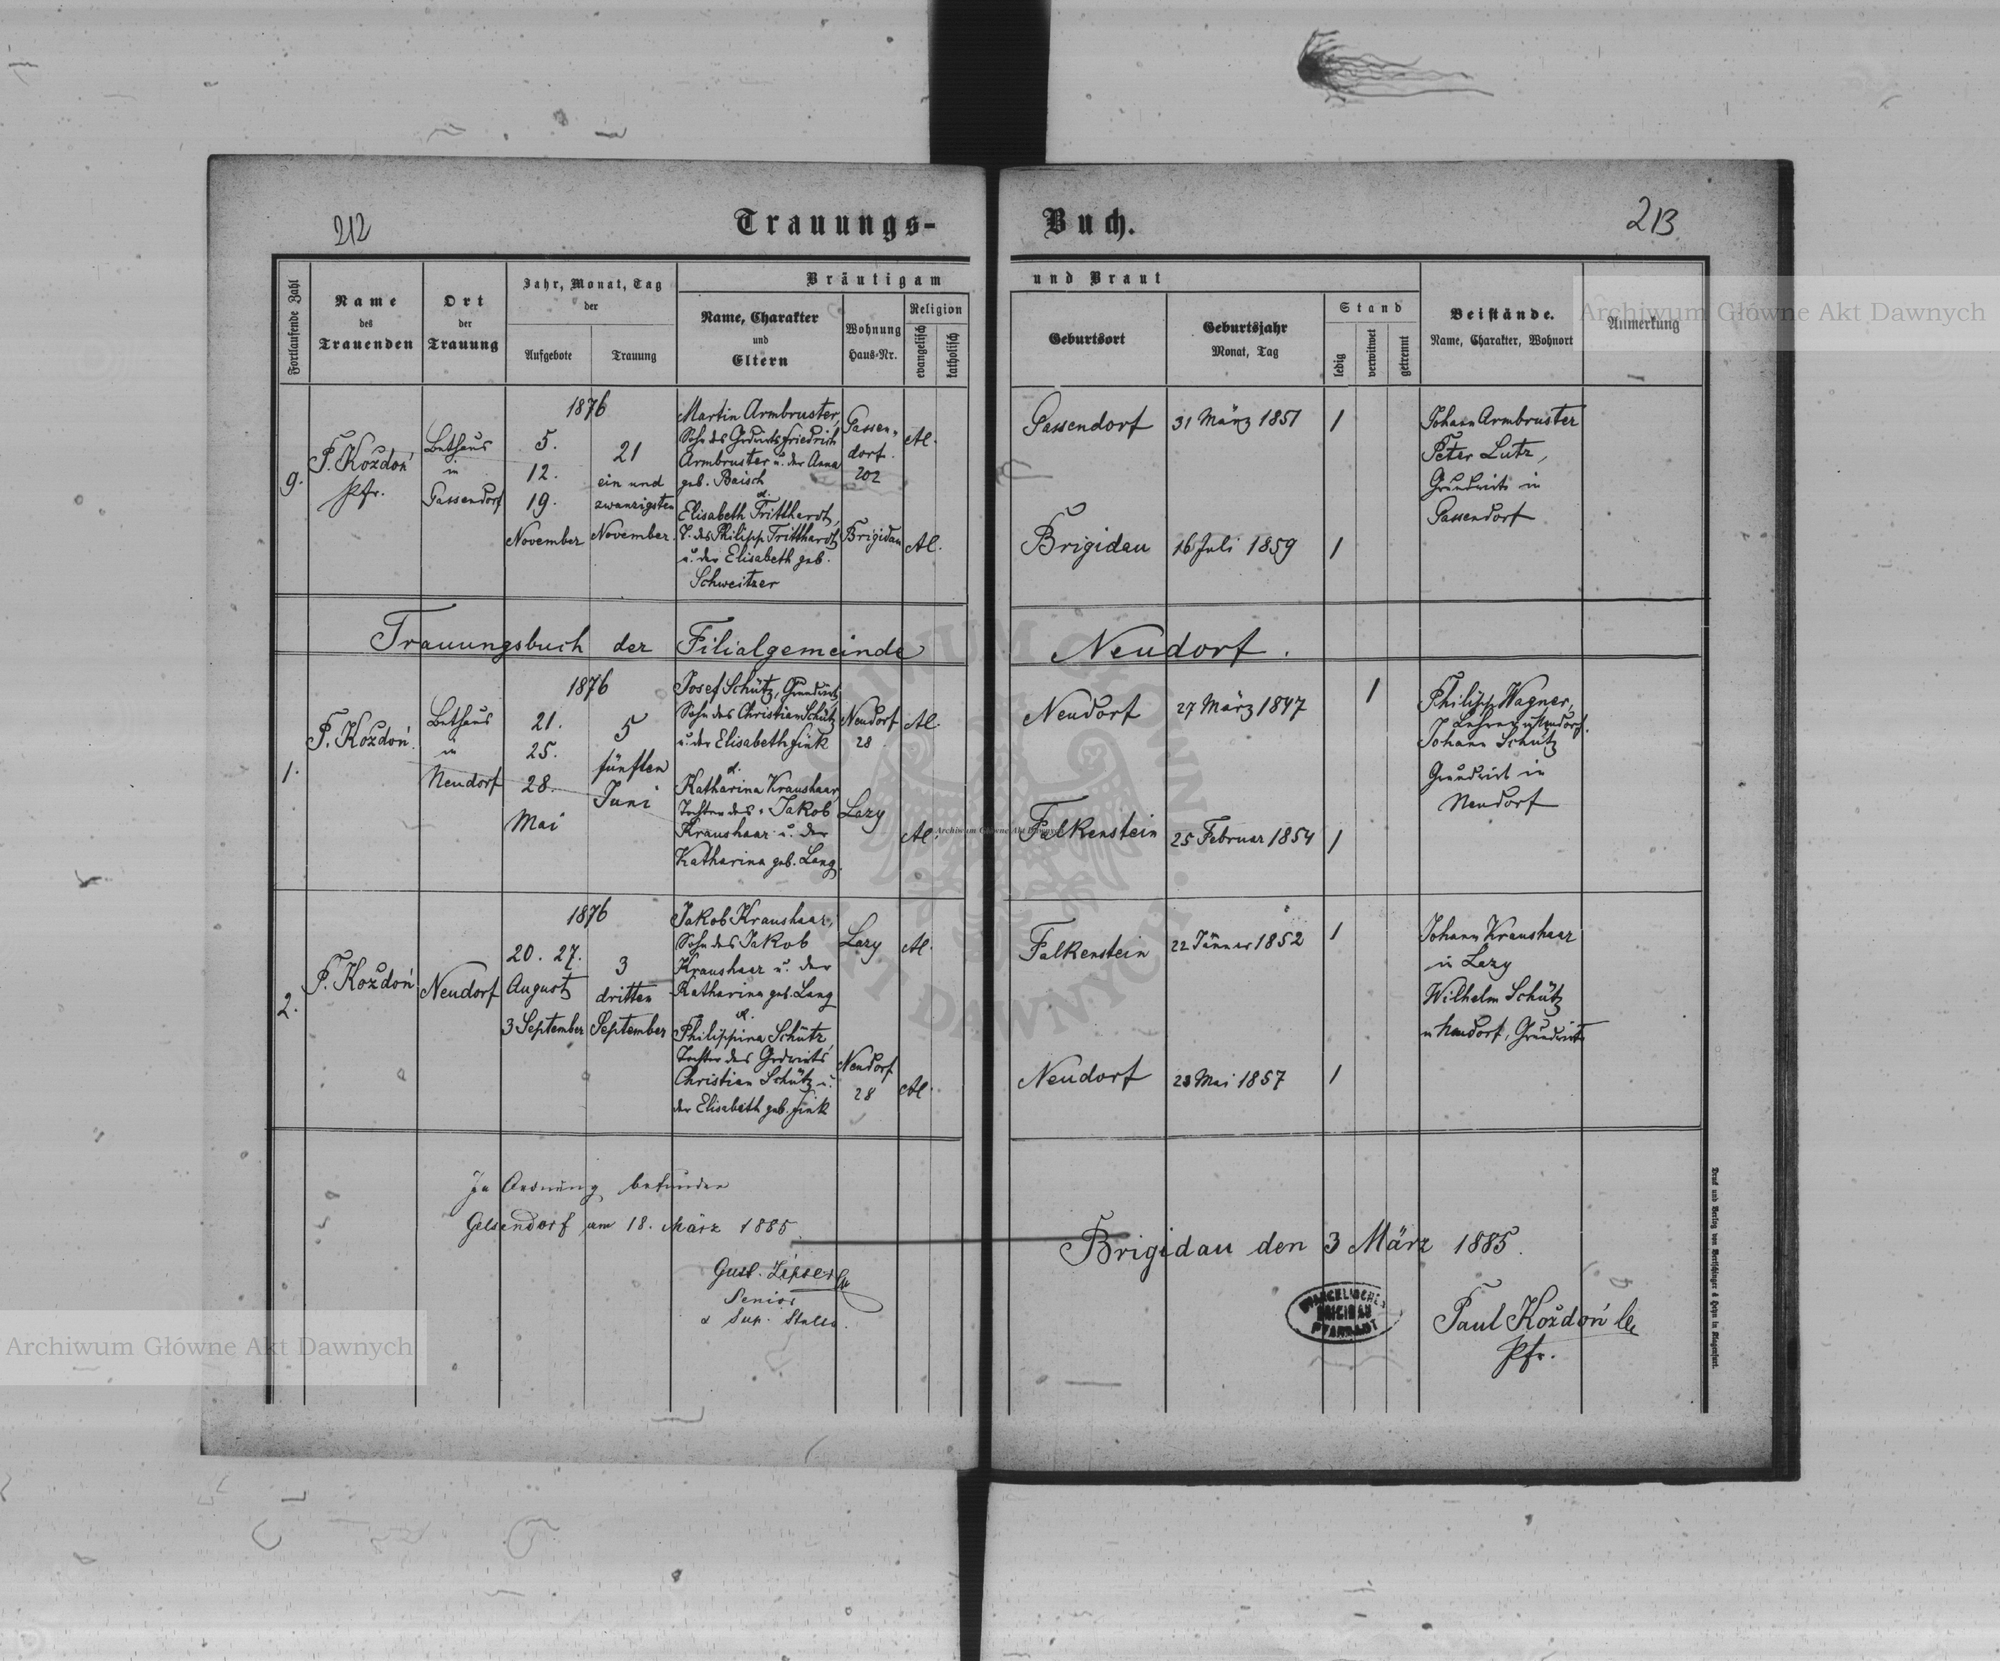 212
Trauungs-
Buch.
213
Fortlaufende Zahl
Name
des
Trauenden
Ort
der
Trauung
Jahr, Monat, Tag
der
Aufgebote
Trauung
Bräutigam
Name, Charakter
und
Eltern
Wohnung
Haus-Nr.
Religion
evangelisch
katholisch
und Braut
Geburtsort
Geburtsjahr
Monat, Tag
Stand
ledig
verwitwet
getrennt
Beistände.
Name, Charakter, Wohnort
Anmerkung
9.
P. Kożdoń
Pfr.
Bethaus
in
Gassendorf
1876
5.
12.
19.
November
21
ein und
zwanzigsten
November
Martin Armbruster,
Sohn des Grdwirts Friedrich
Armbruster u. der Anna
geb. Baisch
&.
Elisabeth Tritthardt,
T. des Philipp Tritthardt
u. der Elisabeth geb.
Schweitzer
Gassen-
dorf.
202
Brigidau
A.
A.
Gassendorf
31 März 1851
1
Brigidau
16 Juli 1859
1
Johann Armbruster
Peter Lutz,
Grundwirte in
Gassendorf
Trauungsbuch der Filialgemeinde
Neudorf.
1.
P. Kożdoń
Bethaus
in
Neudorf
1876
21.
25.
28.
Mai
5
fünften
Juni
Josef Schütz, Grundwirt
Sohn des Christian Schütz
u. der Elisabeth Fink
&.
Katharina Kraushaar
Tochter des Jakob
Kraushaar u. der
Katharina geb. Lang.
Neudorf
28
Lazy
A.
A.
Neudorf
27 März 1847
1
Falkenstein
25 Februar 1854
1
Philipp Wagner,
Lehrer in Neudorf.
Johann Schütz
Grundwirt in
Neudorf
2.
P. Kożdoń
Neudorf
1876
20. 27.
August
3 September
3
dritten
September
Jakob Kraushaar,
Sohn des Jakob
Kraushaar u. der
Katharina geb. Lang
&.
Philippina Schütz,
Tochter des Grdwirts
Christian Schütz u.
der Elisabeth geb. Fink
Lazy
Neudorf
28
A.
A.
Falkenstein
22 Jänner 1852
1
Neudorf
23 Mai 1857
1
Johann Kraushaar
in Lazy
Wilhelm Schütz
in Neudorf, Grundwirte
In Ordnung befunden
Gelsendorf am 18. März 1885.
Gust. Zipser
Senior
Brigidau den 3 März 1885.
EVANGELISCHES
BRIGIDAU
PFARRAMT
Paul Kożdoń
Pfr.
Druck und Verlag von Bertschinger & Heyn in Klagenfurt.
Archiwum Główne Akt Dawnych
Archiwum Główne Akt Dawnych
Archiwum Główne Akt Dawnych
ARCHIWUM GŁÓWNE
AKT DAWNYCH